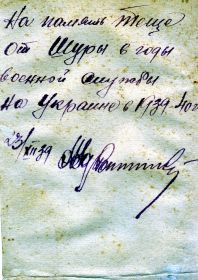 На память Теще
От Шуры в годы
военной службы
на Украине в 1939-40 г
23/XII 39